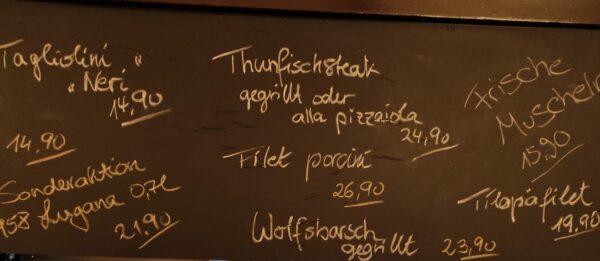 Tagliolini "
"Neri
14,90
14,90
Sonderaktion
958 Lugana 0,7l
21,90
Thunfischsteak
gegrillt oder
alla pizzaiola
24,90
Filet porcini
26,90
Wolfsbarsch
gegrillt 23,90
Frische
Muscheln
15,90
Tilapiafilet
19,90